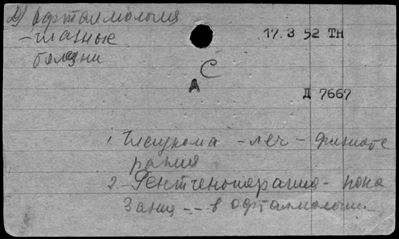 Д) Офталмология
17.3 52 ТН
- глазные
болезни
С
А
Д 7667
1 Глаукома - леч - физиоте
рапия
2. Рентгенотерапия - пока
зани -- в офталмологии